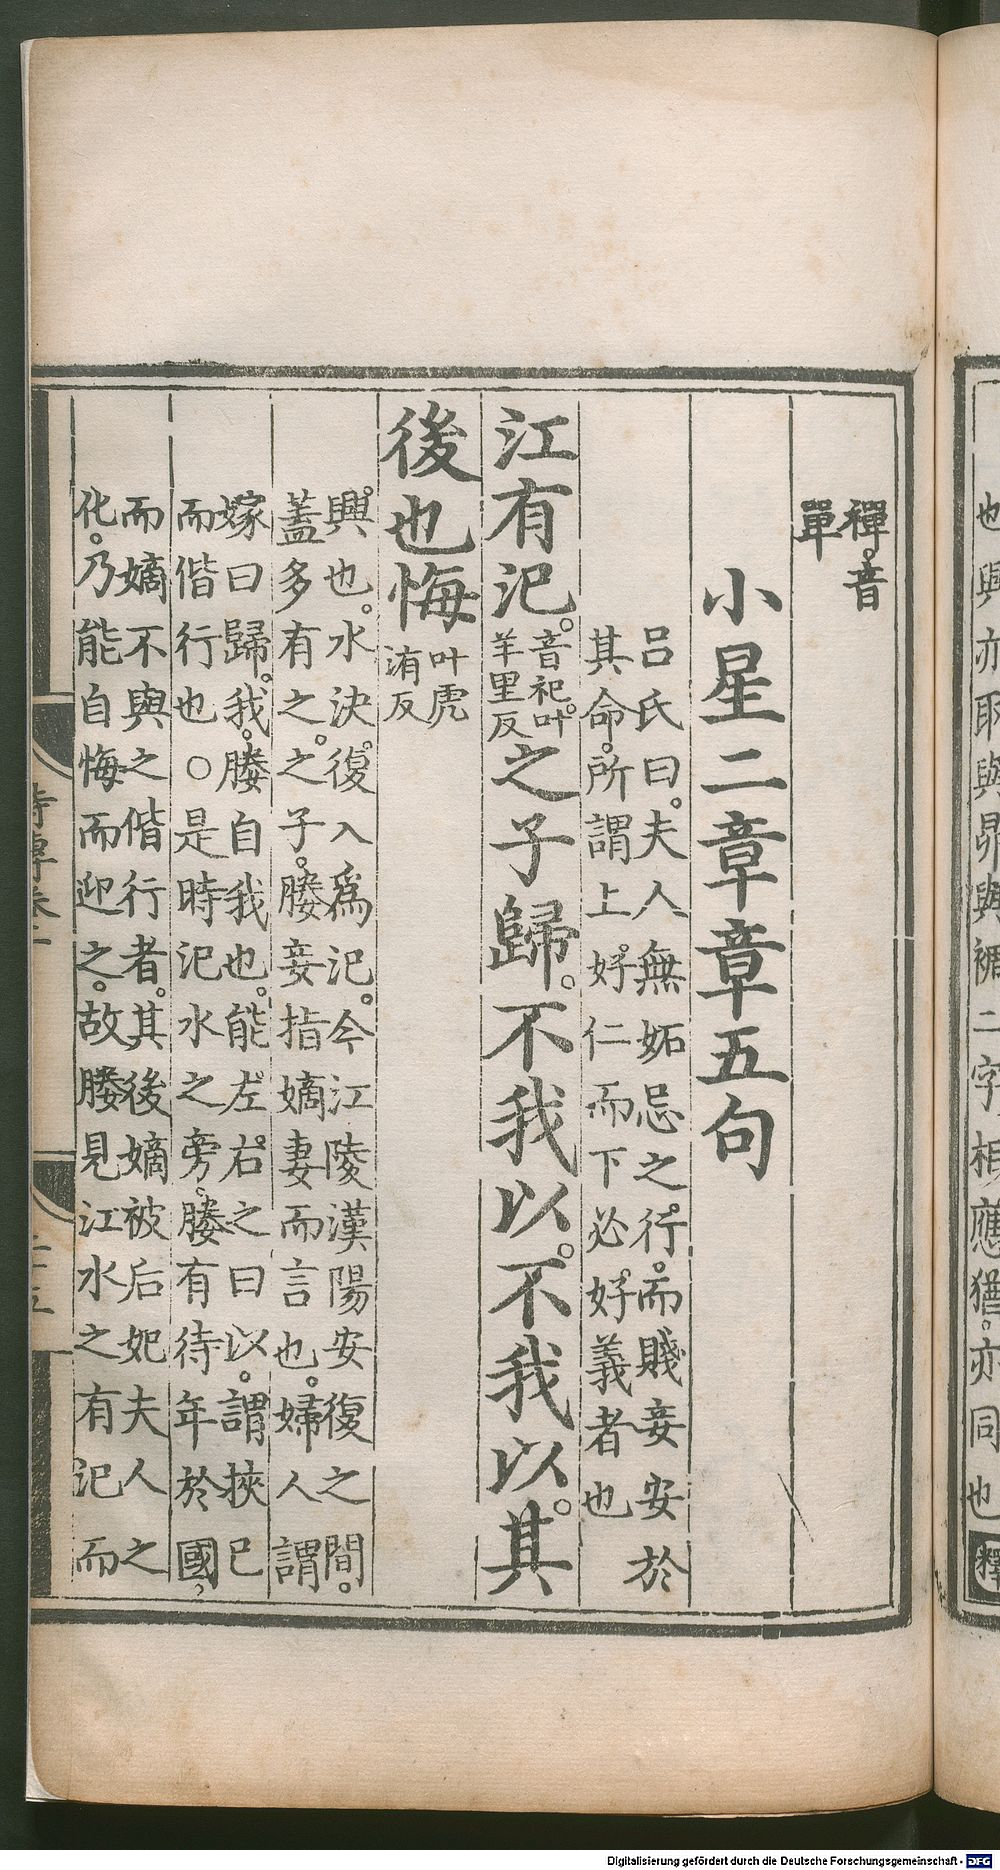 也與亦取與昴與裯二字相應猶。亦同也釋
禪。音
單
小星二章章五句
呂氏曰。夫人無妬忌之行。而賤妾安於
其命。所謂上好仁而下必好義者也
江有汜。音祀。叶羊里反之子歸。不我以。不我以。其
後也悔叶虎洧反
興也。水決復入爲汜。今江陵漢陽安復之間。
蓋多有之。之子。媵妾指嫡妻而言也。婦人謂
嫁曰歸。我。媵自我也。能左右之曰以。謂挾已
而偕行也○是時汜水之旁。媵有待年於國。
而嫡不與之偕行者。其後嫡被后妃夫人之
化。乃能自悔而迎之。故媵見江水之有汜而
詩傳卷一
二五
Digitalisierung gefördert durch die Deutsche Forschungsgemeinschaft - DFG